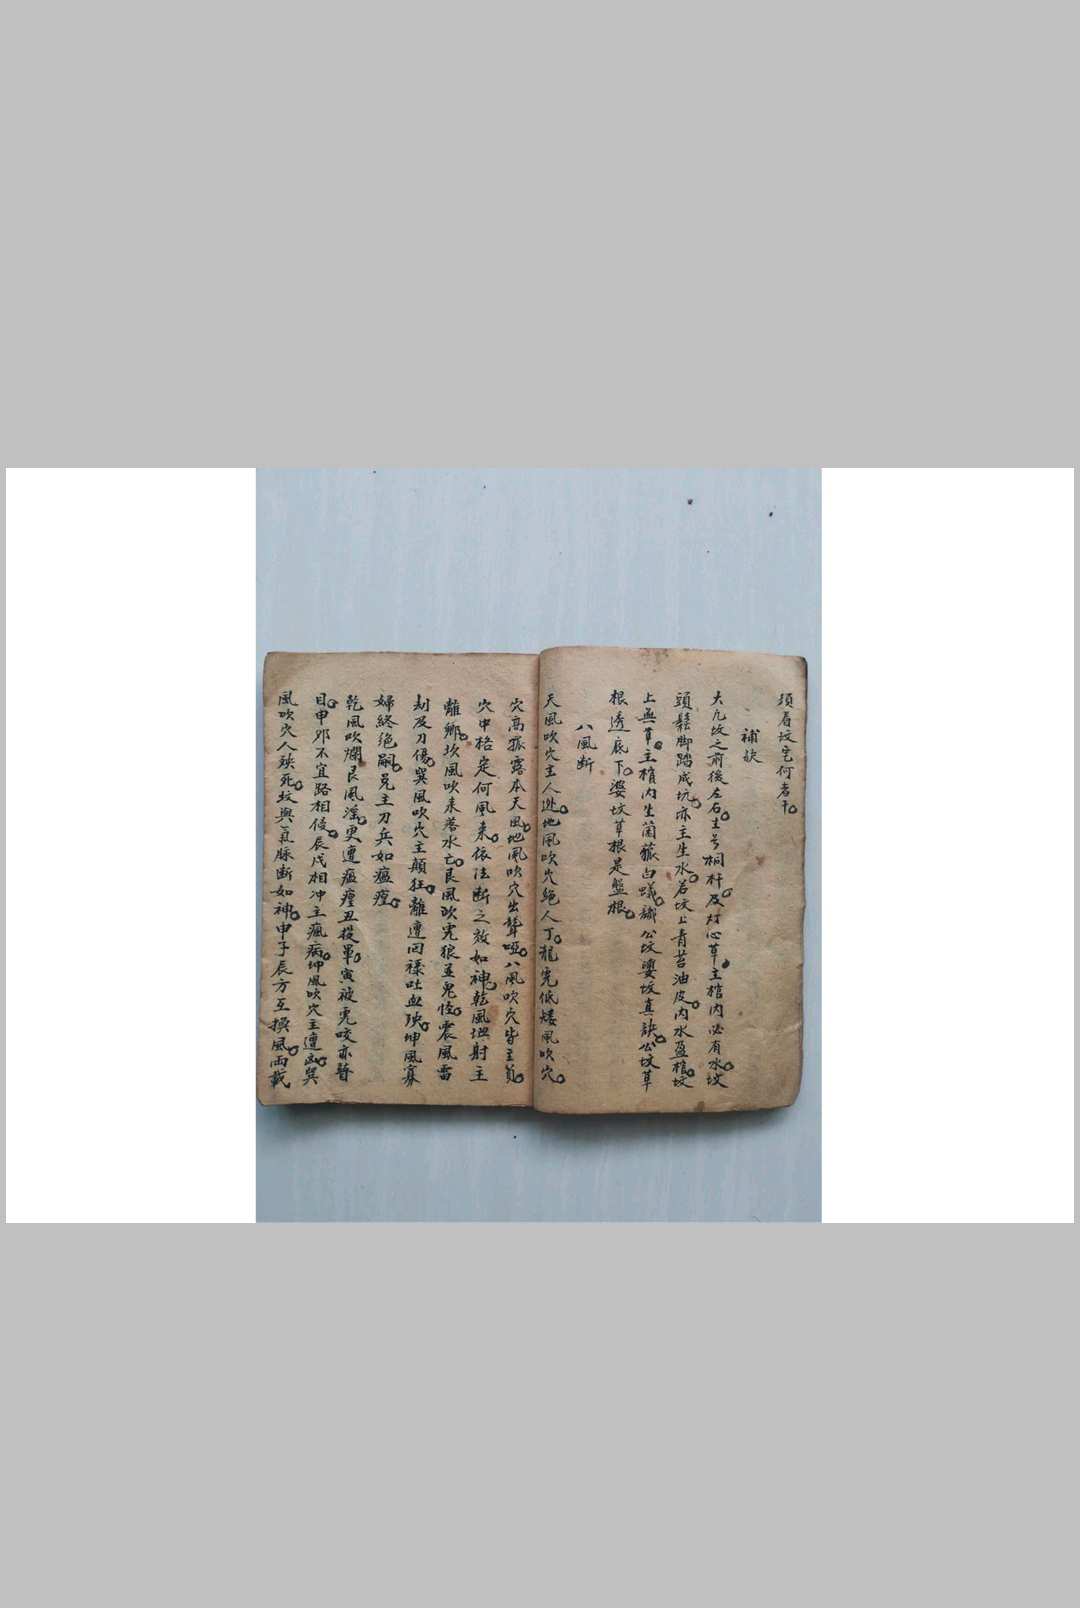 須看坟在何者中。
補訣
大凡坟之前後左右。生芎桐杆及材心草。主棺内必有水。坟
頭鬆脚踏成坑。亦主生水。若坟上青苔油皮。内水盈棺。坟
上無草。主棺内生菌窠白蟻。識公坟婆坟真訣。公坟草
根透底下。婆坟草根是盤根。
八風断
天風吹穴主人逃。地風吹穴絶人丁。龍虎低矮風吹穴。
穴高擴露本天風。地風吹穴出聾啞。八風吹穴皆主貧。
穴中格定何風来。依法断之效如神。乾風坦射主
離鄉。坎風吹来落水亡。艮風吹虎狼並鬼怪。震風雷
刦及刀傷。巽風吹穴主顛狂。離遭囬祿吐血殃。坤風寡
婦終绝嗣。兑主刀兵如瘟瘴。
乾風吹爛艮風滛。更遭瘟瘴丑投軍。寅被虎咬亦瞽
目。申卯不宜路相侵。辰戌相冲主瘋病。坤風吹穴主遭凶。巽
風吹穴人殃死。坟與氣脉断如神。申子辰方互摸風。雨載